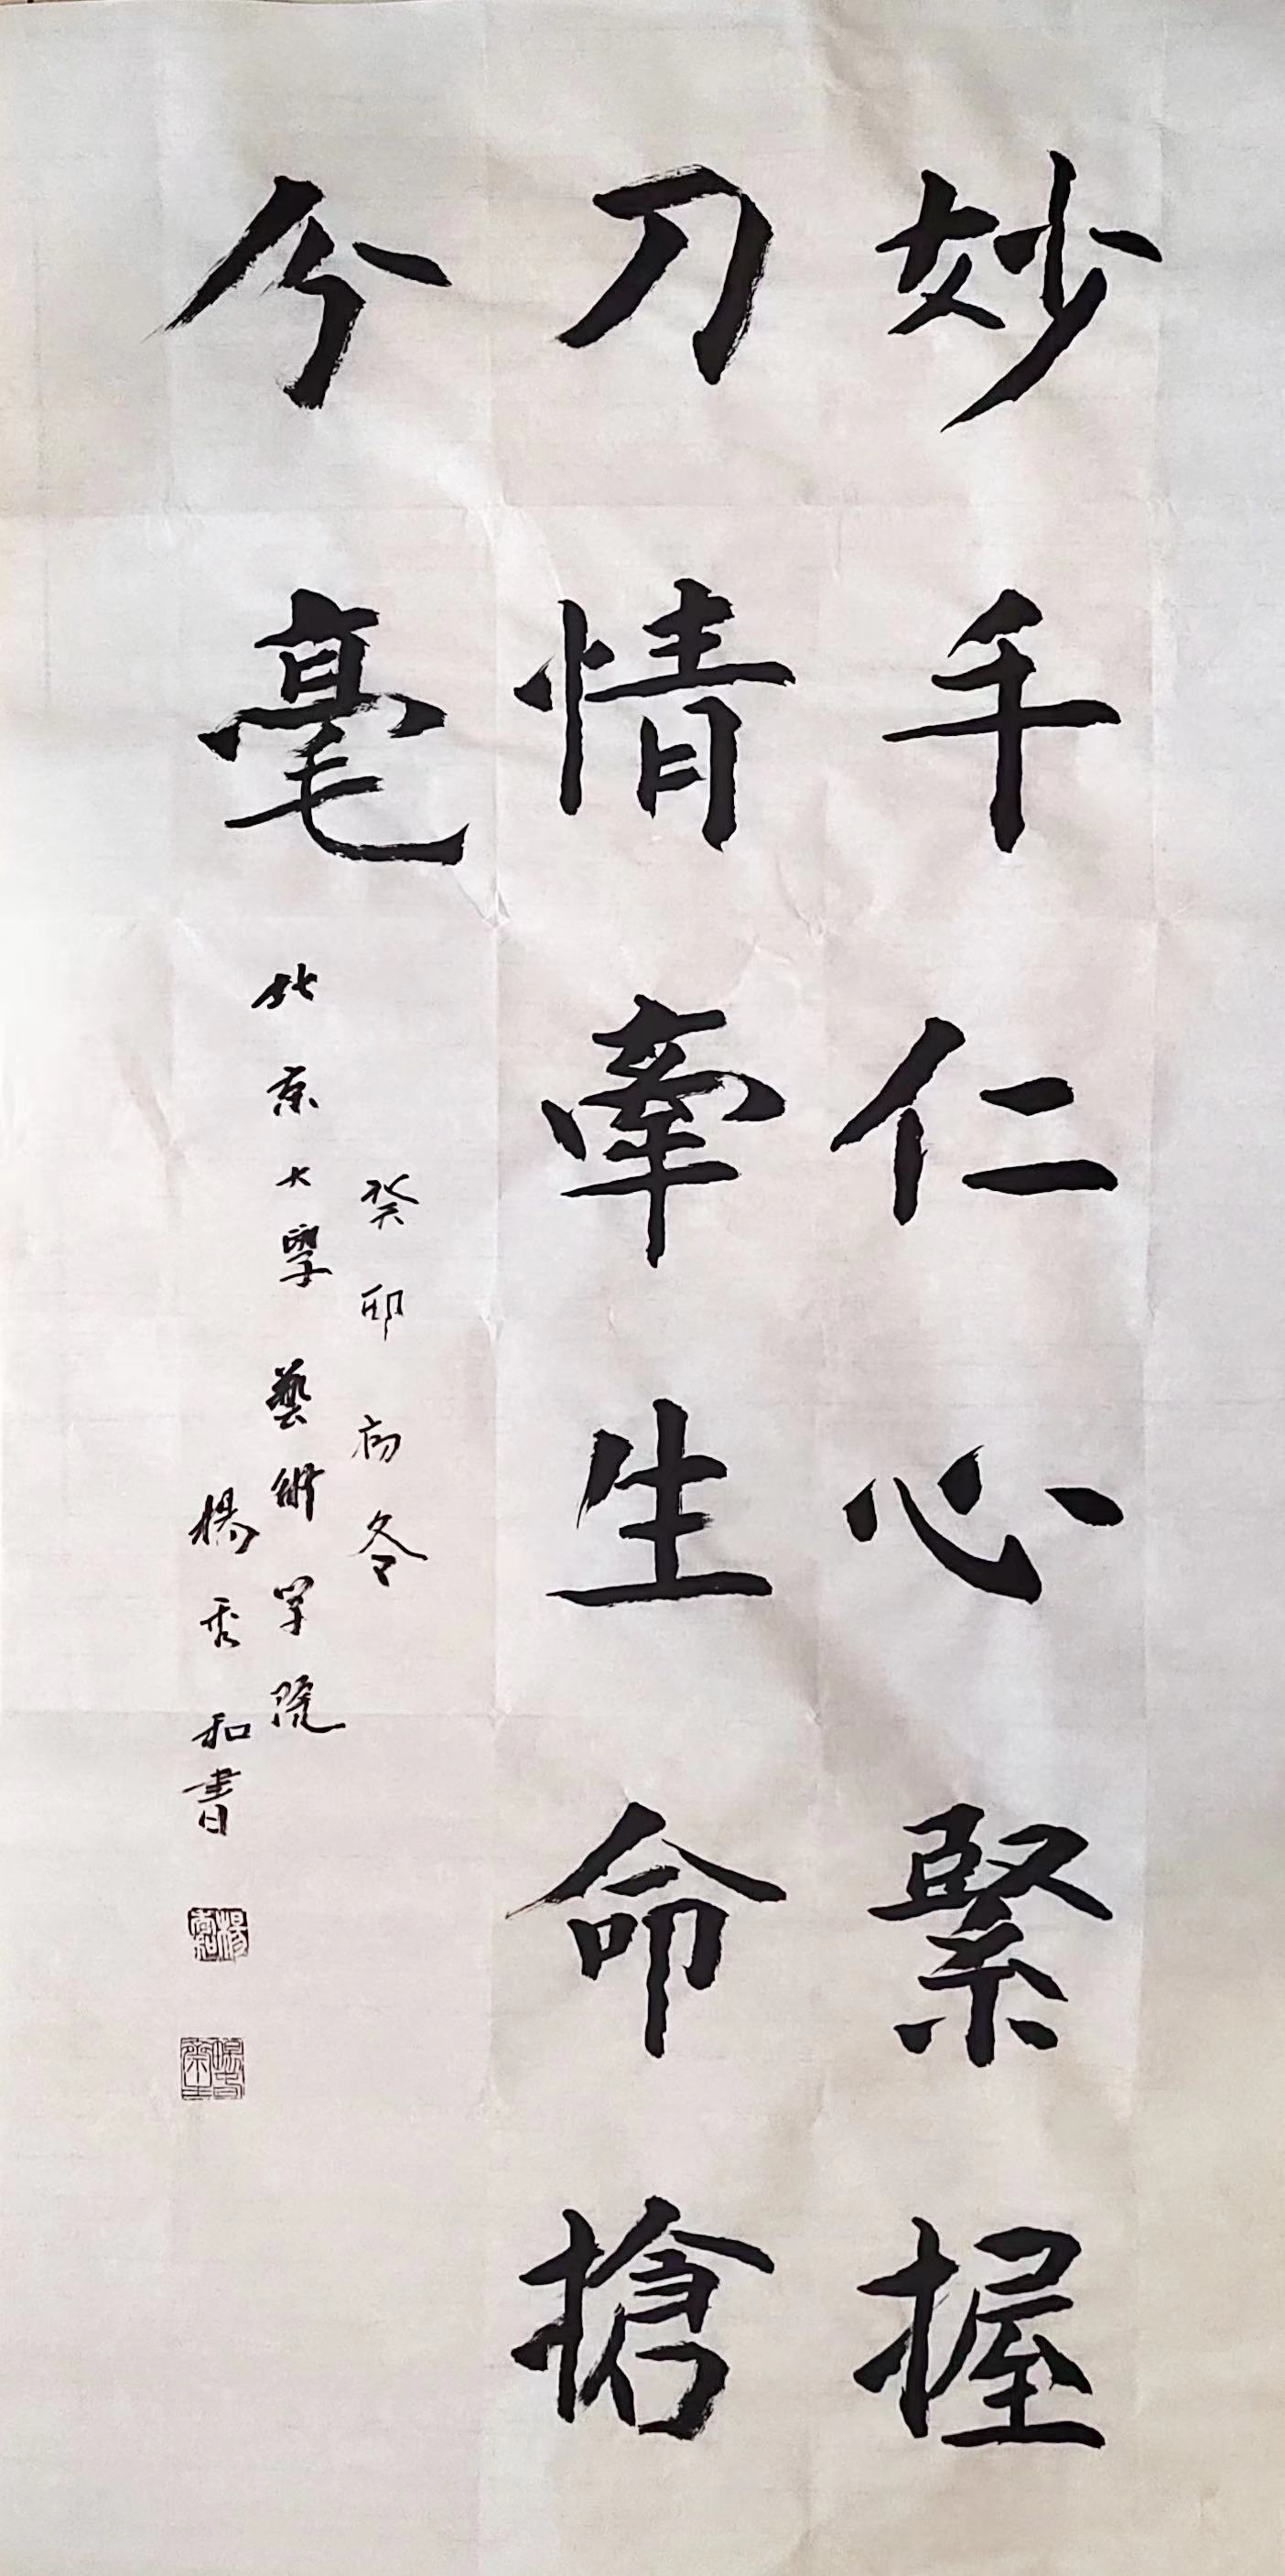 妙手仁心緊握
刀情牽生命搶
分毫
癸卯初冬
北京大學藝術学院
楊秀和書